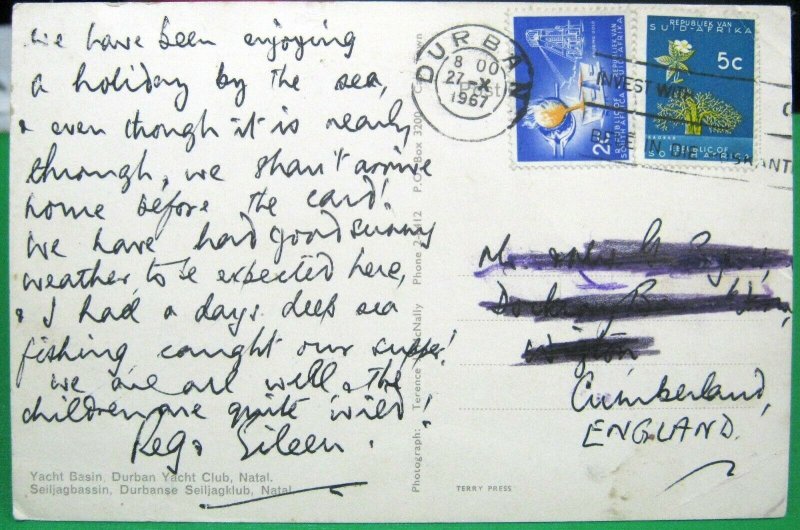 we have been enjoying
a holiday by the sea,
& even though it is nearly
through, we shan't arrive
home before the card!
We have had good sunny
weather, to be expected here,
& I had a days deep sea
fishing caught our supper!
we are all well & the
children are quite wild!
Reg & Eileen.
Yacht Basin, Durban Yacht Club, Natal.
Seiljagbassin, Durbanse Seiljagklub, Natal.
Photograph: Terence McNally Phone 2-3412 P.O. Box 3200 Cape Town
DURBAN
8 00
27-X
1967
INVEST WITH
REPUBLIEK VAN
SUID-AFRIKA
5c
REPUBLIC OF
SOUTH AFRICA
Cumberland,
ENGLAND.
TERRY PRESS